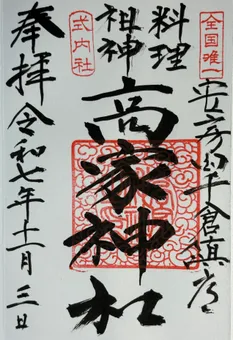 全国唯一
安房国千倉鎮座
料理
祖神
高家神社
式内社
奉拝
令和七年十一月三日